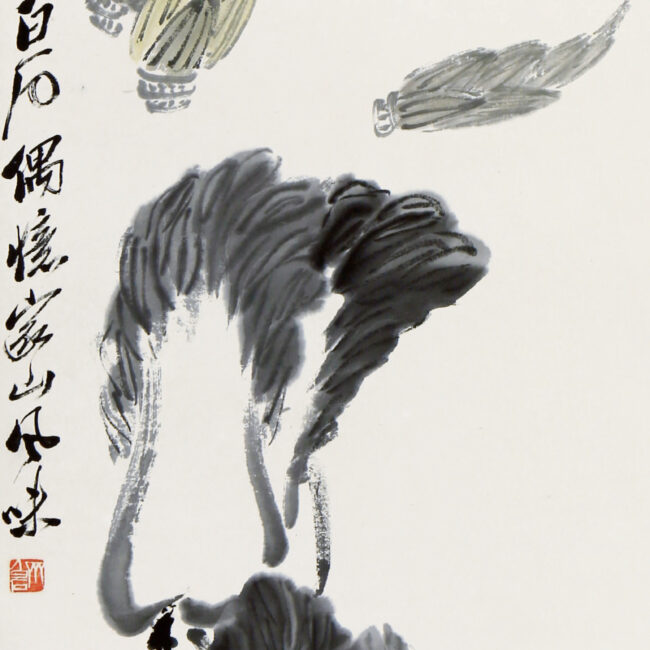 白石偶憶家山風味